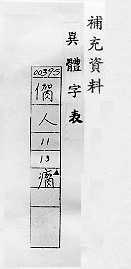 補充資料
異體字表
00395
人
11
13
瘸